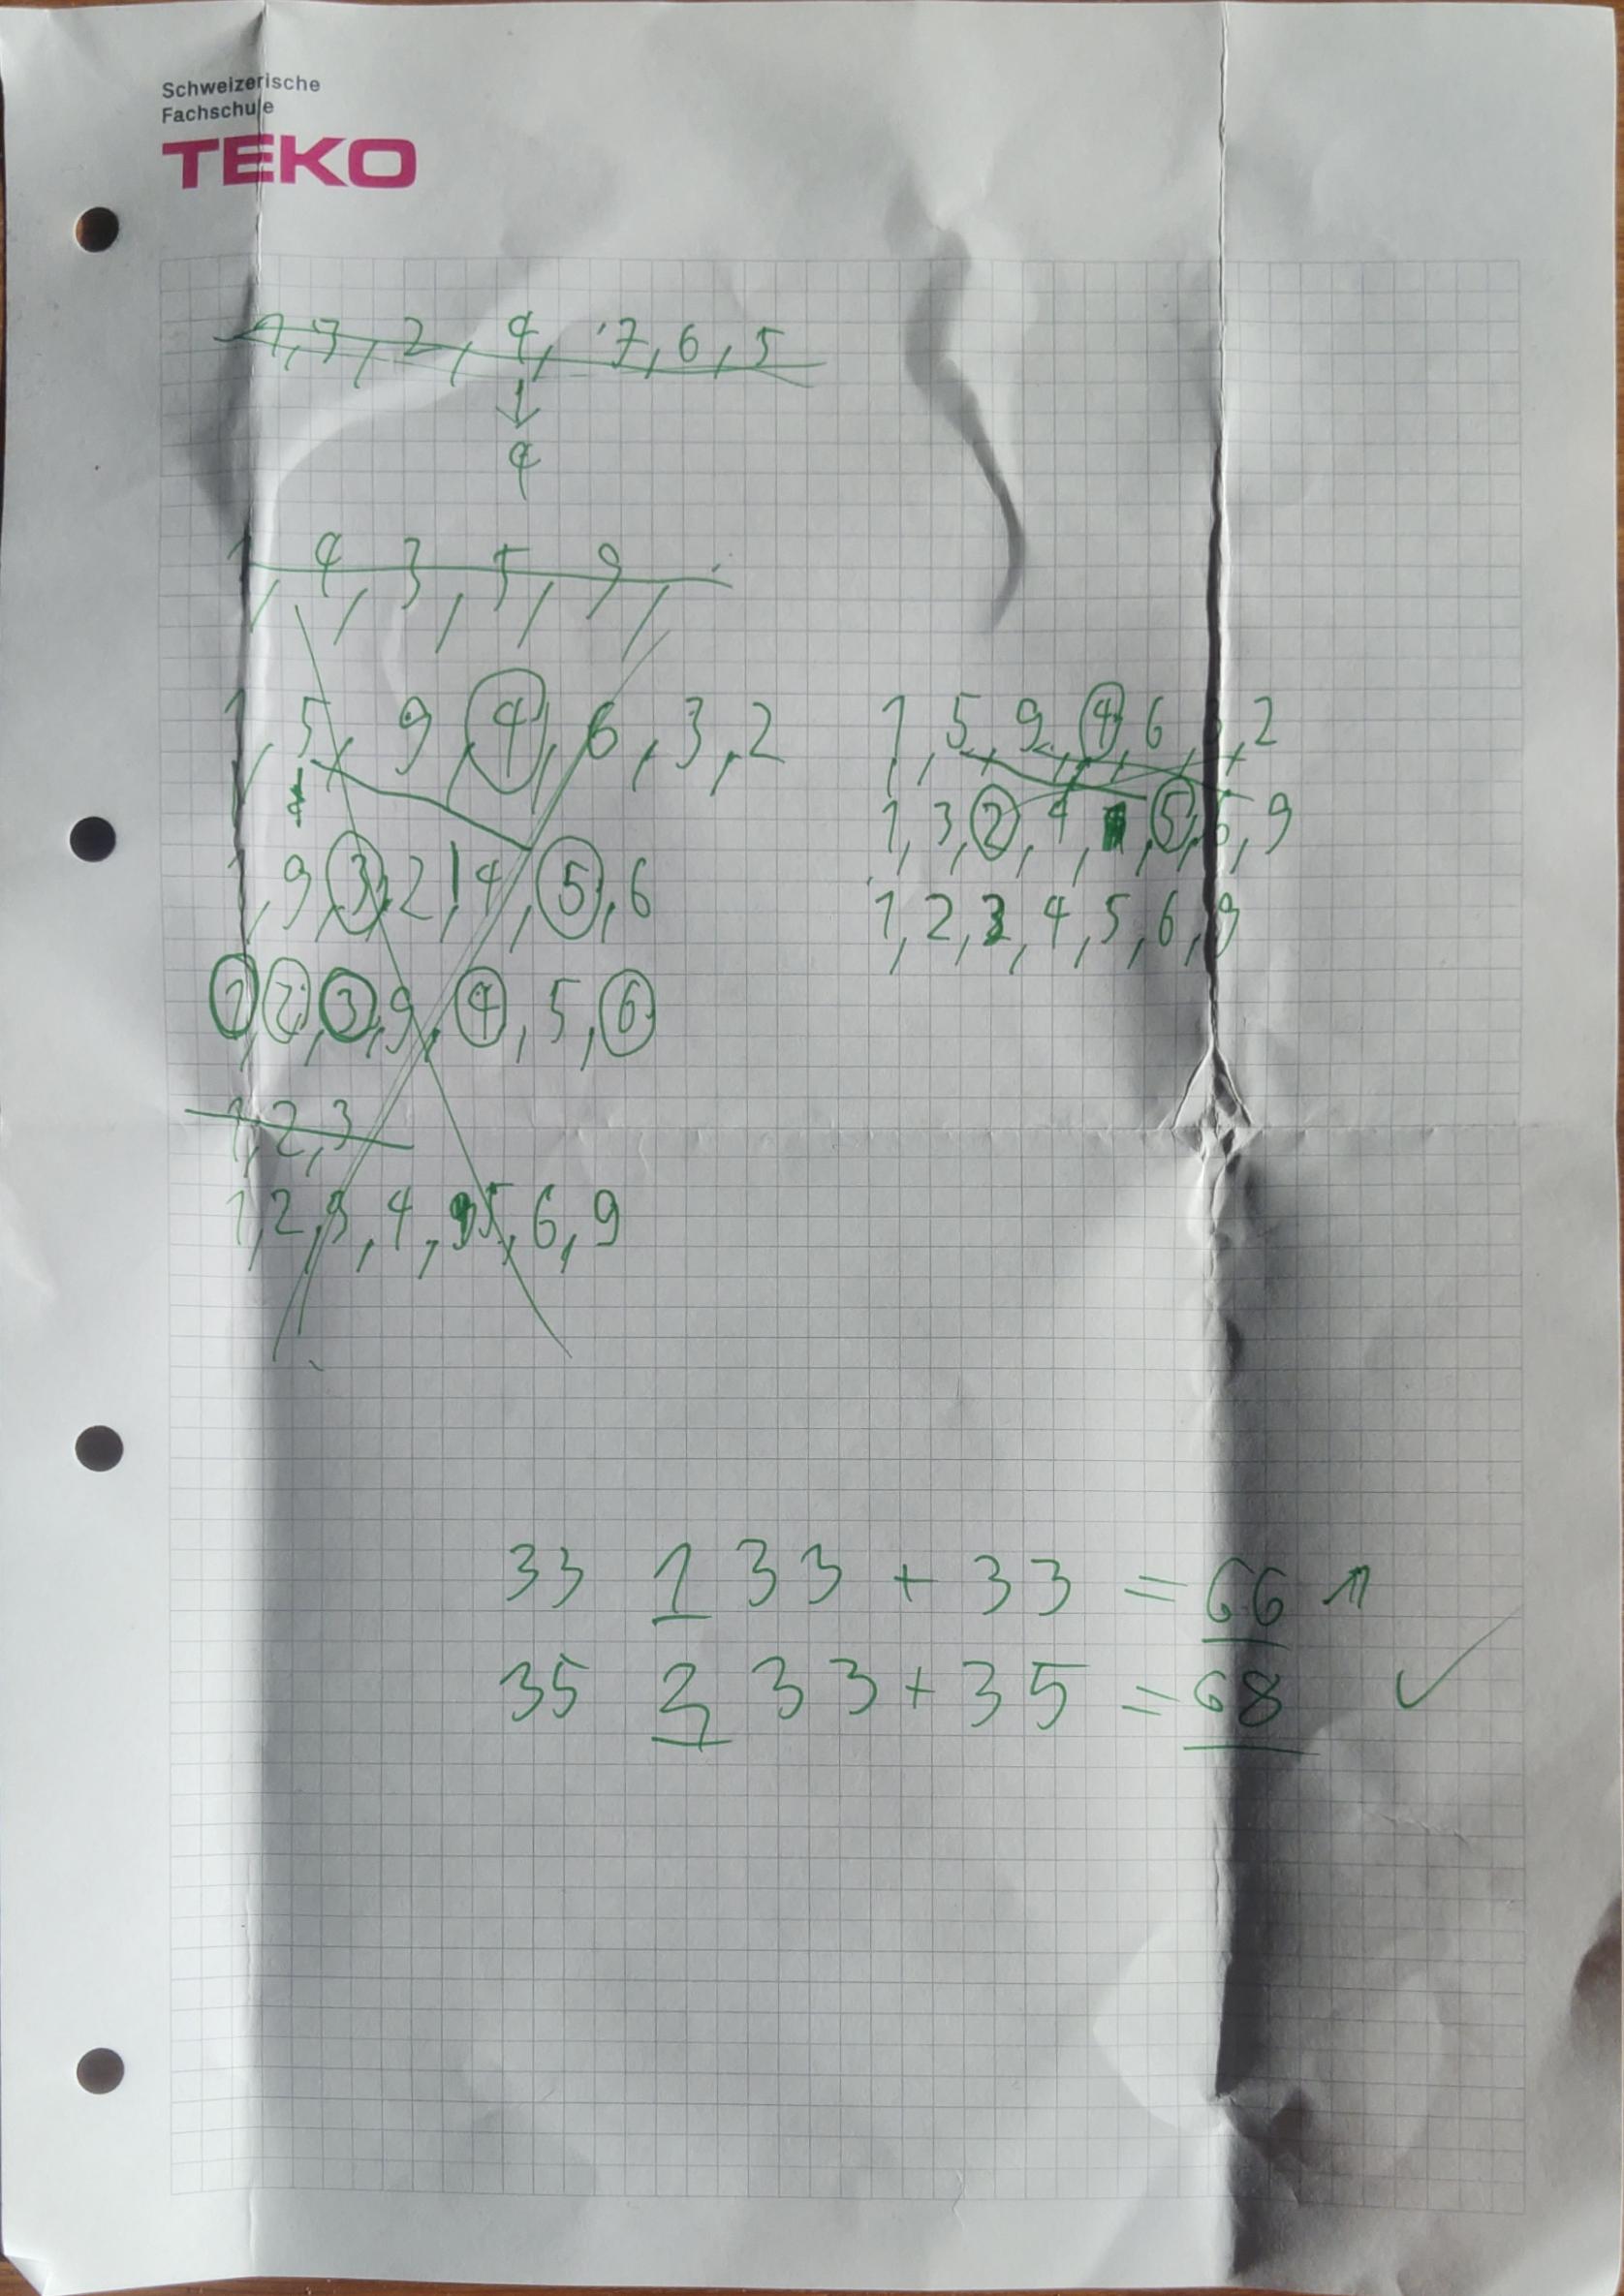 Schweizerische
Fachschule
TEKO
1, 3, 2, 4, 7, 6, 5
4
1, 4, 3, 5, 9,
1, 5, 9, 4, 6, 3, 2
1, 9, 3, 2, 4, 5, 6
1, 2, 3, 9, 4, 5, 6
1, 2, 3
1, 2, 3, 4, 5, 6, 9
1, 5, 9, 4, 6, 3, 2
1, 3, 2, 4, 5, 6, 9
1, 2, 3, 4, 5, 6, 9
33 1 33 + 33 = 66
35 2 33 + 35 = 68 ✓